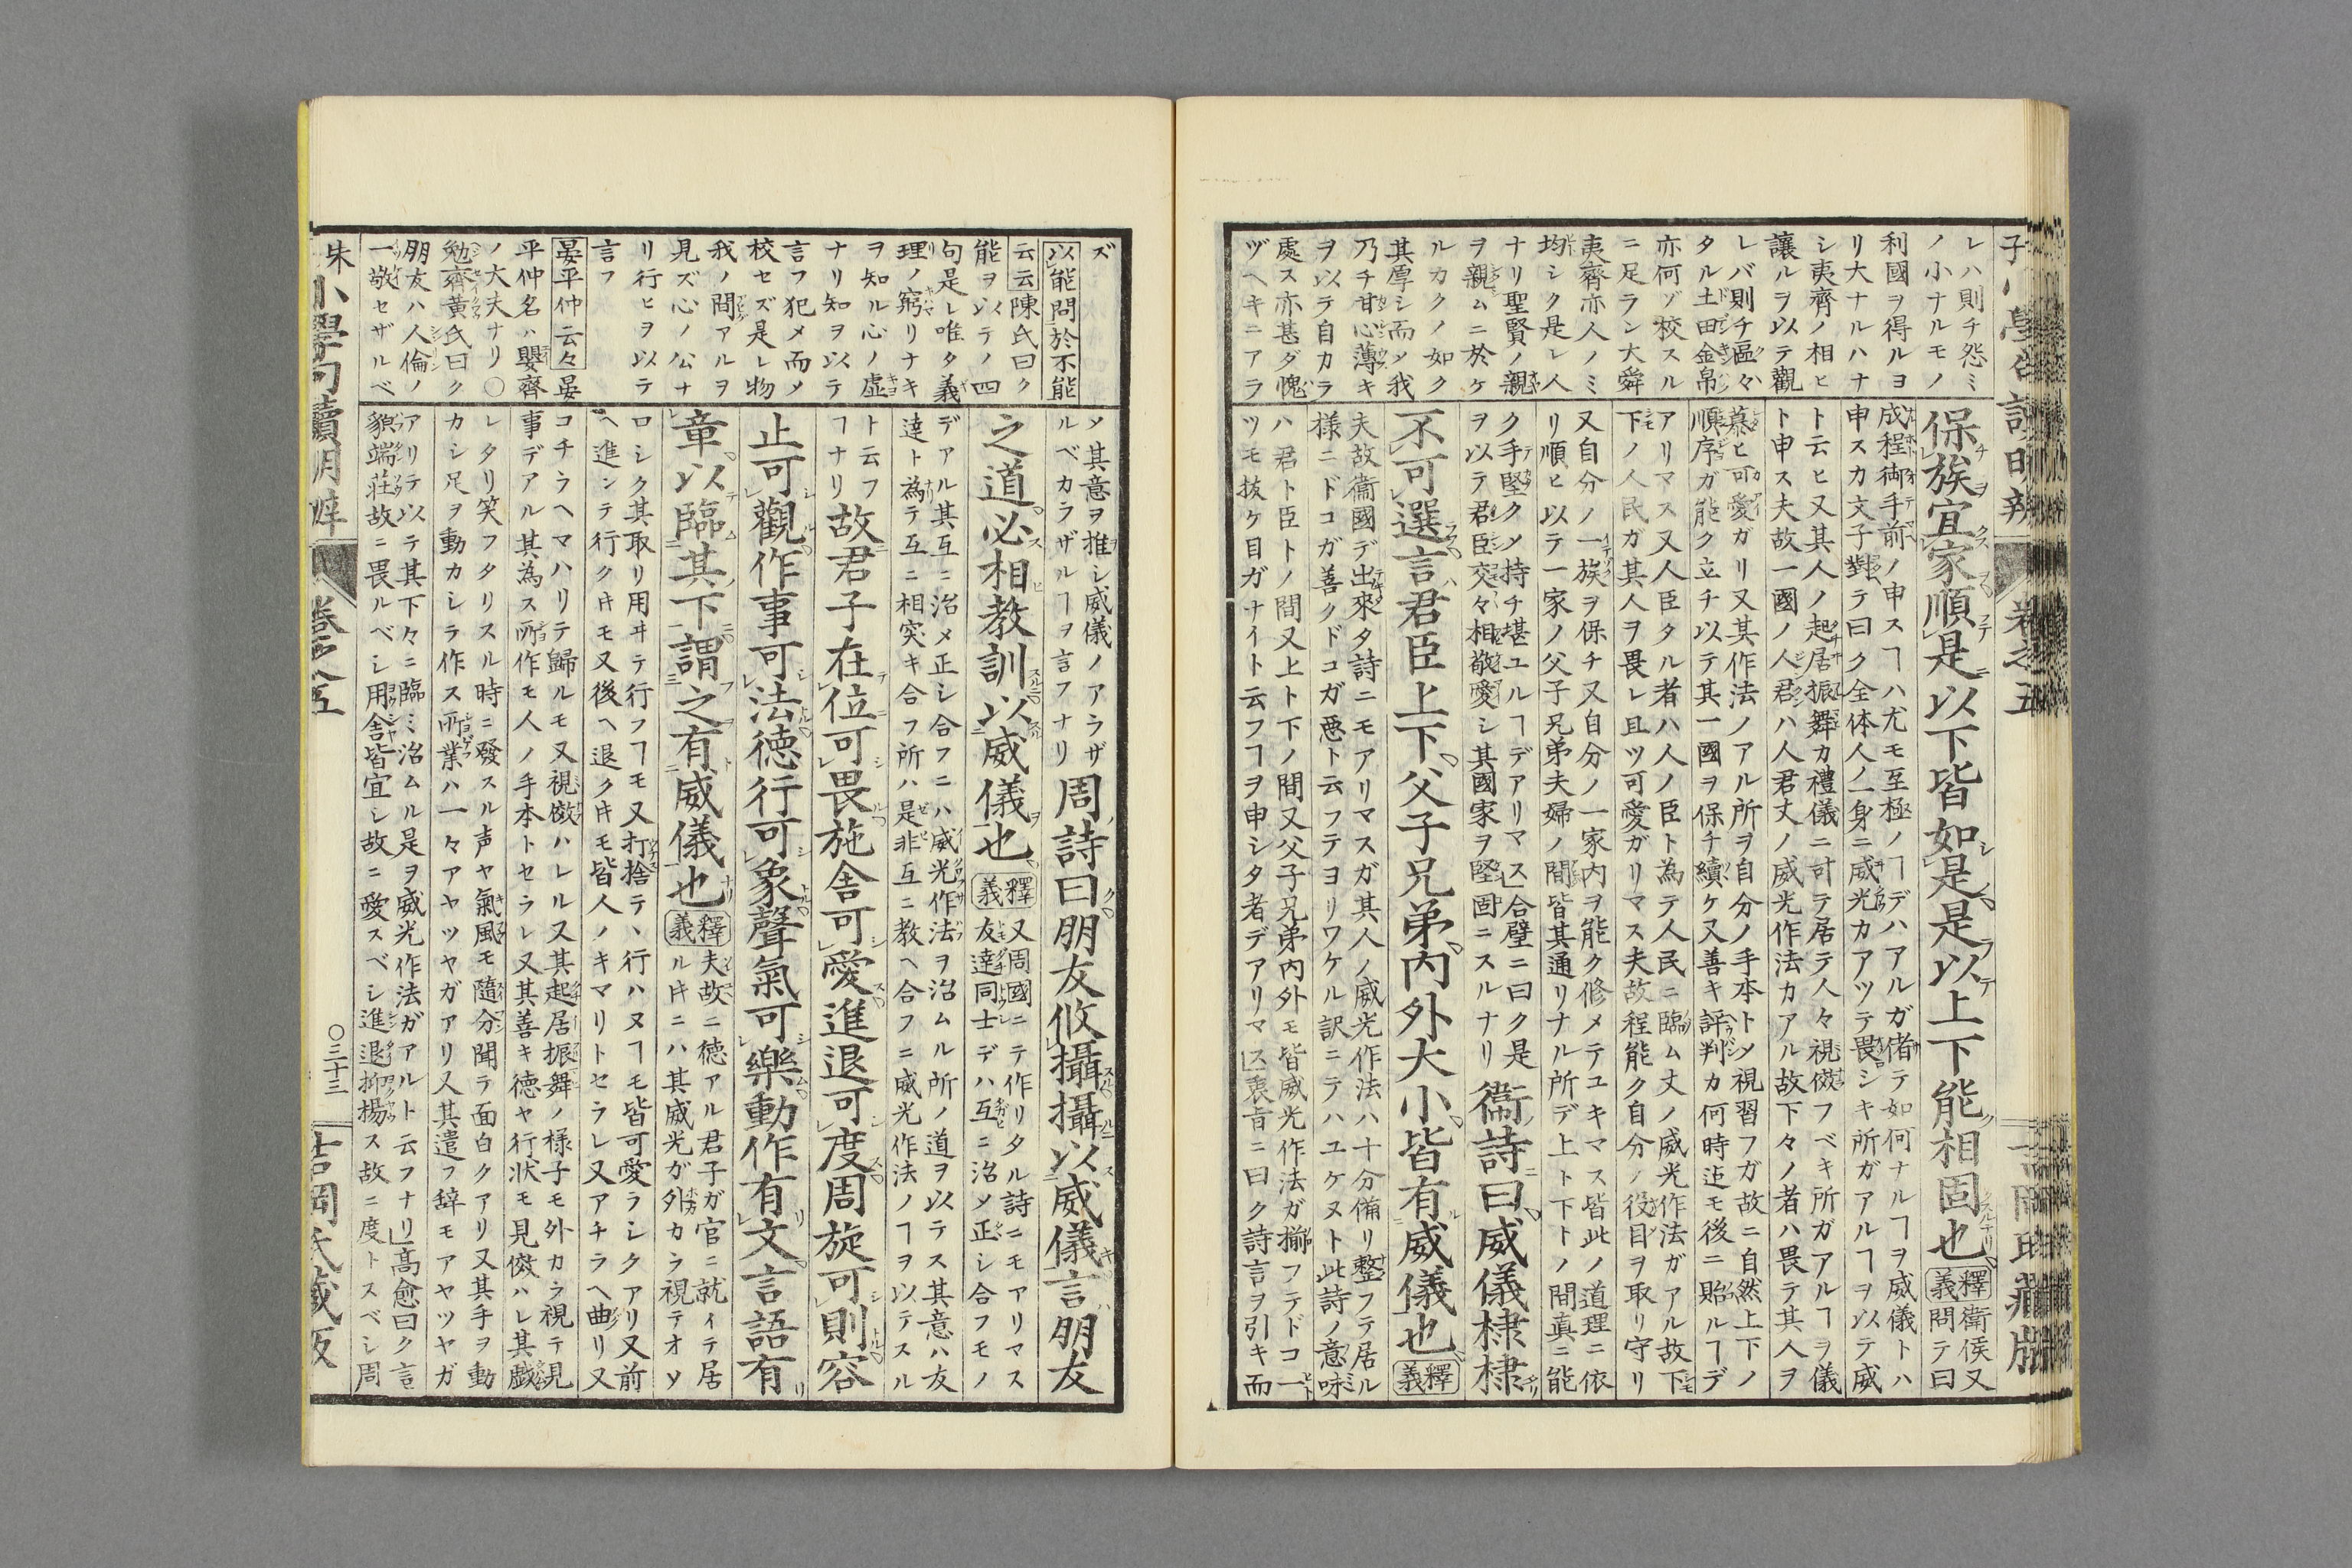 レハ則チ怨ミ
ノ小ナルモノ
利國ヲ得ルヨ
リ大ナルハナ
シ夷齊ノ相ヒ
讓ルヲ以テ觀
レバ則チ區々
タル土田金帛
亦何ゾ校スル
ニ足ラン大舜
夷齊亦人ノミ
均シク是レ人
ナリ聖賢ノ親
ヲ親ムニ於ケ
ルカクノ如ク
其厚シ而メ我
乃チ甘心薄キ
ヲ以テ自カラ
處ス亦甚ダ愧
ヅヘキニアラ
保族宜家順是以下皆如是是以上下能相固也
釋義
衛侯又
問テ曰
成程御手前ノ申スヿハ尤モ至極ノヿデハアルガ偖テ如何ナルヿヲ威儀トハ
申スカ文子對テ曰ク全体人ノ一身ニ威光カアツテ畏シキ所ガアルヿヲ以テ威
ト云ヒ又其人ノ起居振舞カ禮儀ニ可テ居テ人々視傚フベキ所ガアルヿヲ儀
ト申ス夫故一國ノ人君ハ人君丈ノ威光作法カアル故下々ノ者ハ畏テ其人ヲ
慕ヒ可愛ガリ又其作法ノアル所ヲ自分ノ手本トメ視習フガ故ニ自然上下ノ
順序ガ能ク立チ以テ其一國ヲ保チ續ケ又善キ評判カ何時迄モ後ニ貽ルヿデ
アリマス又人臣タル者ハ人ノ臣ト為テ人民ニ臨ム丈ノ威光作法ガアル故下
下ノ人民ガ其人ヲ畏レ且ツ可愛ガリマス夫故程能ク自分ノ役目ヲ取リ守リ
又自分ノ一族ヲ保チ又自分ノ一家内ヲ能ク修メテユキマス皆此ノ道理ニ依
リ順ヒ以テ一家ノ父子兄弟夫婦ノ間皆其通リナル所デ上ト下トノ間真ニ能
ク手堅クメ持チ堪ユルヿデアリマス」合璧ニ曰ク是
ヲ以テ君臣交々相敬愛シ其國家ヲ堅固ニスルナリ
衞詩曰威儀棣棣
不可選言君臣上下父子兄弟內外大小皆有威儀也
釋義
夫故衞國デ出來タ詩ニモアリマスガ其人ノ威光作法ハ十分備リ整フテ居ル
樣ニドコガ善クドコガ悪ト云フテヨリワケル訳ニテハユケヌト此詩ノ意味
ハ君ト臣トノ間又上ト下ノ間又父子兄弟内外モ皆威光作法ガ揃フテドコ一
ツモ抜ケ目ガナイト云フヿヲ申シタ者デアリマス」衷旨ニ曰ク詩言ヲ引キ而
ズ
以能問於不能
云云陳氏曰ク
能ヲ以テノ四
句是レ唯タ義
理ノ窮リナキ
ヲ知ル心ノ虛
ナリ知ヲ以テ
言フ犯メ而メ
校セズ是レ物
我ノ間アルヲ
見ズ心ノ公ナ
リ行ヒヲ以テ
言フ
晏平仲云々晏
平仲名ハ嬰齊
ノ大夫ナリ〇
勉齊黃氏曰ク
朋友ハ人倫ノ
一敬セザルベ
ソ其意ヲ推シ威儀ノアラザ
ルベカラザルヿヲ言フナリ
周詩曰朋友攸攝攝以威儀言朋友
之道必相教訓以威儀也
釋義
又周國ニテ作リタル詩ニモアリマス
友達同士デハ互ニ治メ正シ合フモノ
デアル其互ニ治メ正シ合フニハ威光作法ヲ治ムル所ノ道ヲ以テス其意ハ友
達ト為テ互ニ相突キ合フ所ハ是非互ニ教ヘ合フニ威光作法ノヿヲ以テスル
ト云フ
ヿナリ
故君子在位可畏施舍可愛進退可度周旋可則容
止可觀作事可法徳行可象聲氣可樂動作有文言語有
章以臨其下謂之有威儀也
釋義
夫故ニ徳アル君子ガ官ニ就イテ居
ル㪽ニハ其威光ガ外カラ視テオソ
ロシク其取リ用ヰテ行フヿモ又打捨テヽ行ハヌヿモ皆可愛ラシクアリ又前
ヘ進ンテ行ク𪜈モ又後ヘ退ク𪜈モ皆人ノキマリトセラレ又アチラヘ曲リ又
コチラヘマハリテ歸ルモ又視傚ハレル又其起居振舞ノ様子モ外カラ視テ見
事デアル其為ス所作モ人ノ手本トセラレ又其善キ徳ヤ行状モ見傚ハレ其戯
レタリ笑フタリスル時ニ發スル声ヤ氣風モ隨分聞テ面白クアリ又其手ヲ動
カシ足ヲ動カシラ作ス所業ハ一々アヤツヤガアリ又其遣フ辞モアヤツヤガ
アリテ以テ其下々ニ臨ミ治ムル是ヲ威光作法ガアルト云フナリ」高愈曰ク言
貌端莊故ニ畏ルベシ用舎皆宜シ故ニ愛スベシ進退抑揚ス故ニ度トスベシ周
朱
小學句讀明辨
卷之五
〇三十三
吉岡氏藏版